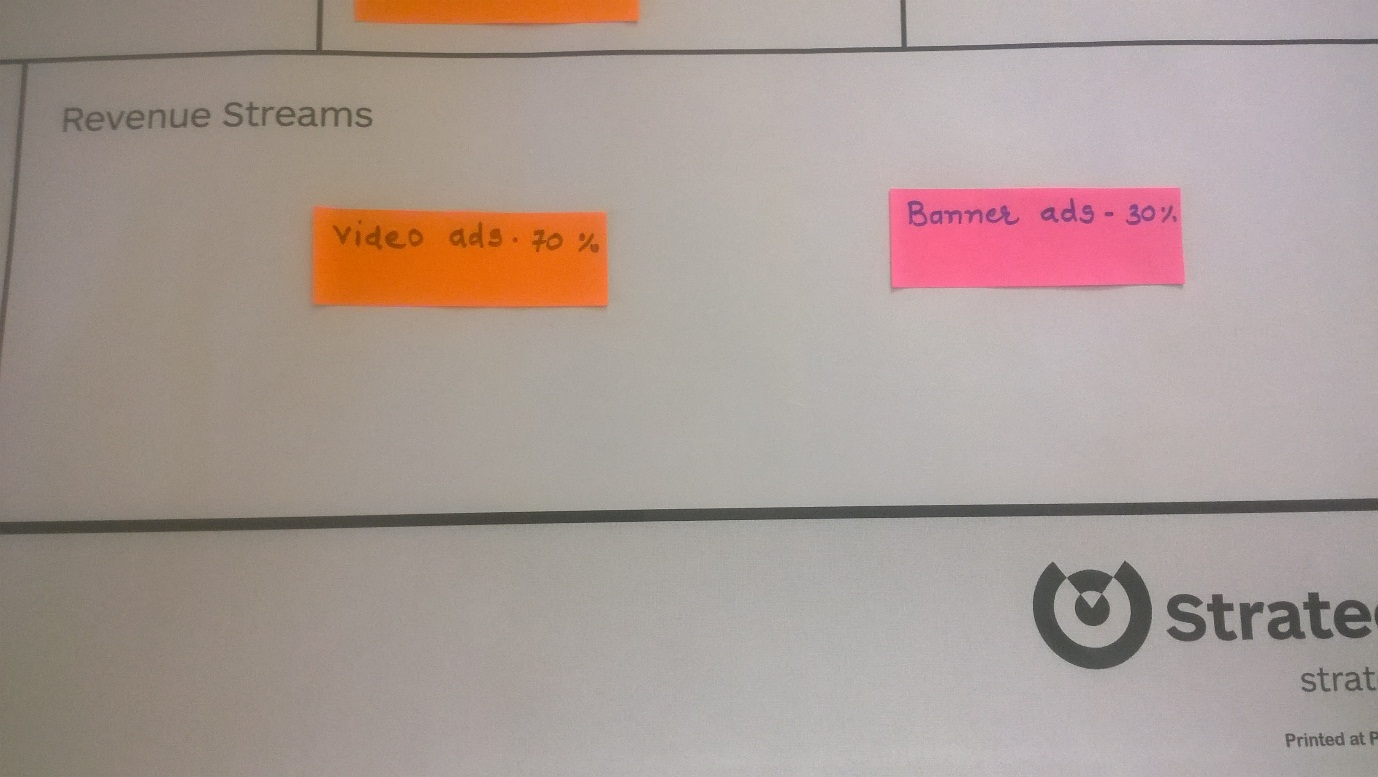 Revenue Streams
Video ads. 70 %
Banner ads - 30%
strat
Printed at P